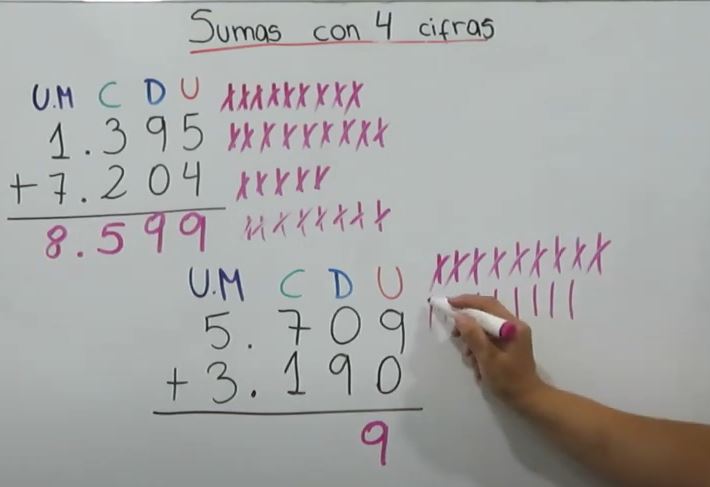 Sumas con 4 cifras
U.M C D U
1.395
+7.204
8.599
U.M C D U
5.709
+3.190
9